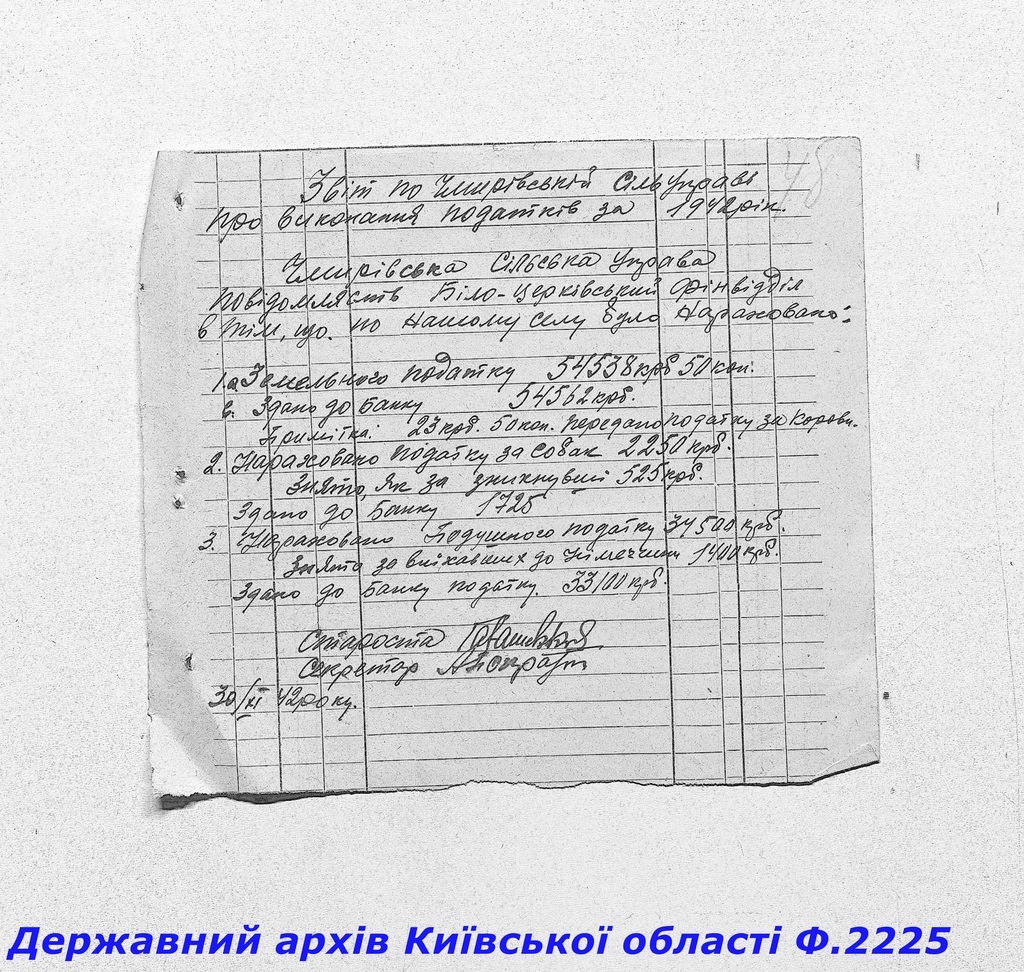 48
Звіт по Чмирівській Сільуправі
про виконання податків за 1942 рік.
Чмирівська Сільська Управа
повідомляєть Біло-Церківський Фінвідділ
в тім, що. по нашому селу було нараховано:
1. а Земельного податку 54538 крб 50 коп.
в. Здано до Банку 54562 крб.
Примітка: 23 крб. 50 коп. передано податку за корови.
2. Нараховано податку за собак 2250 крб.
Знято, як за зникнувші 525 крб.
Здано до Банку 1725
3. Нараховано Подушного податку 34500 крб.
Знято за виїхавших до Німеччини 1400 крб.
Здано до Банку податку. 33100 крб.
Староста
Секретар
30/XI 42 року.
Державний архів Київської області Ф.2225